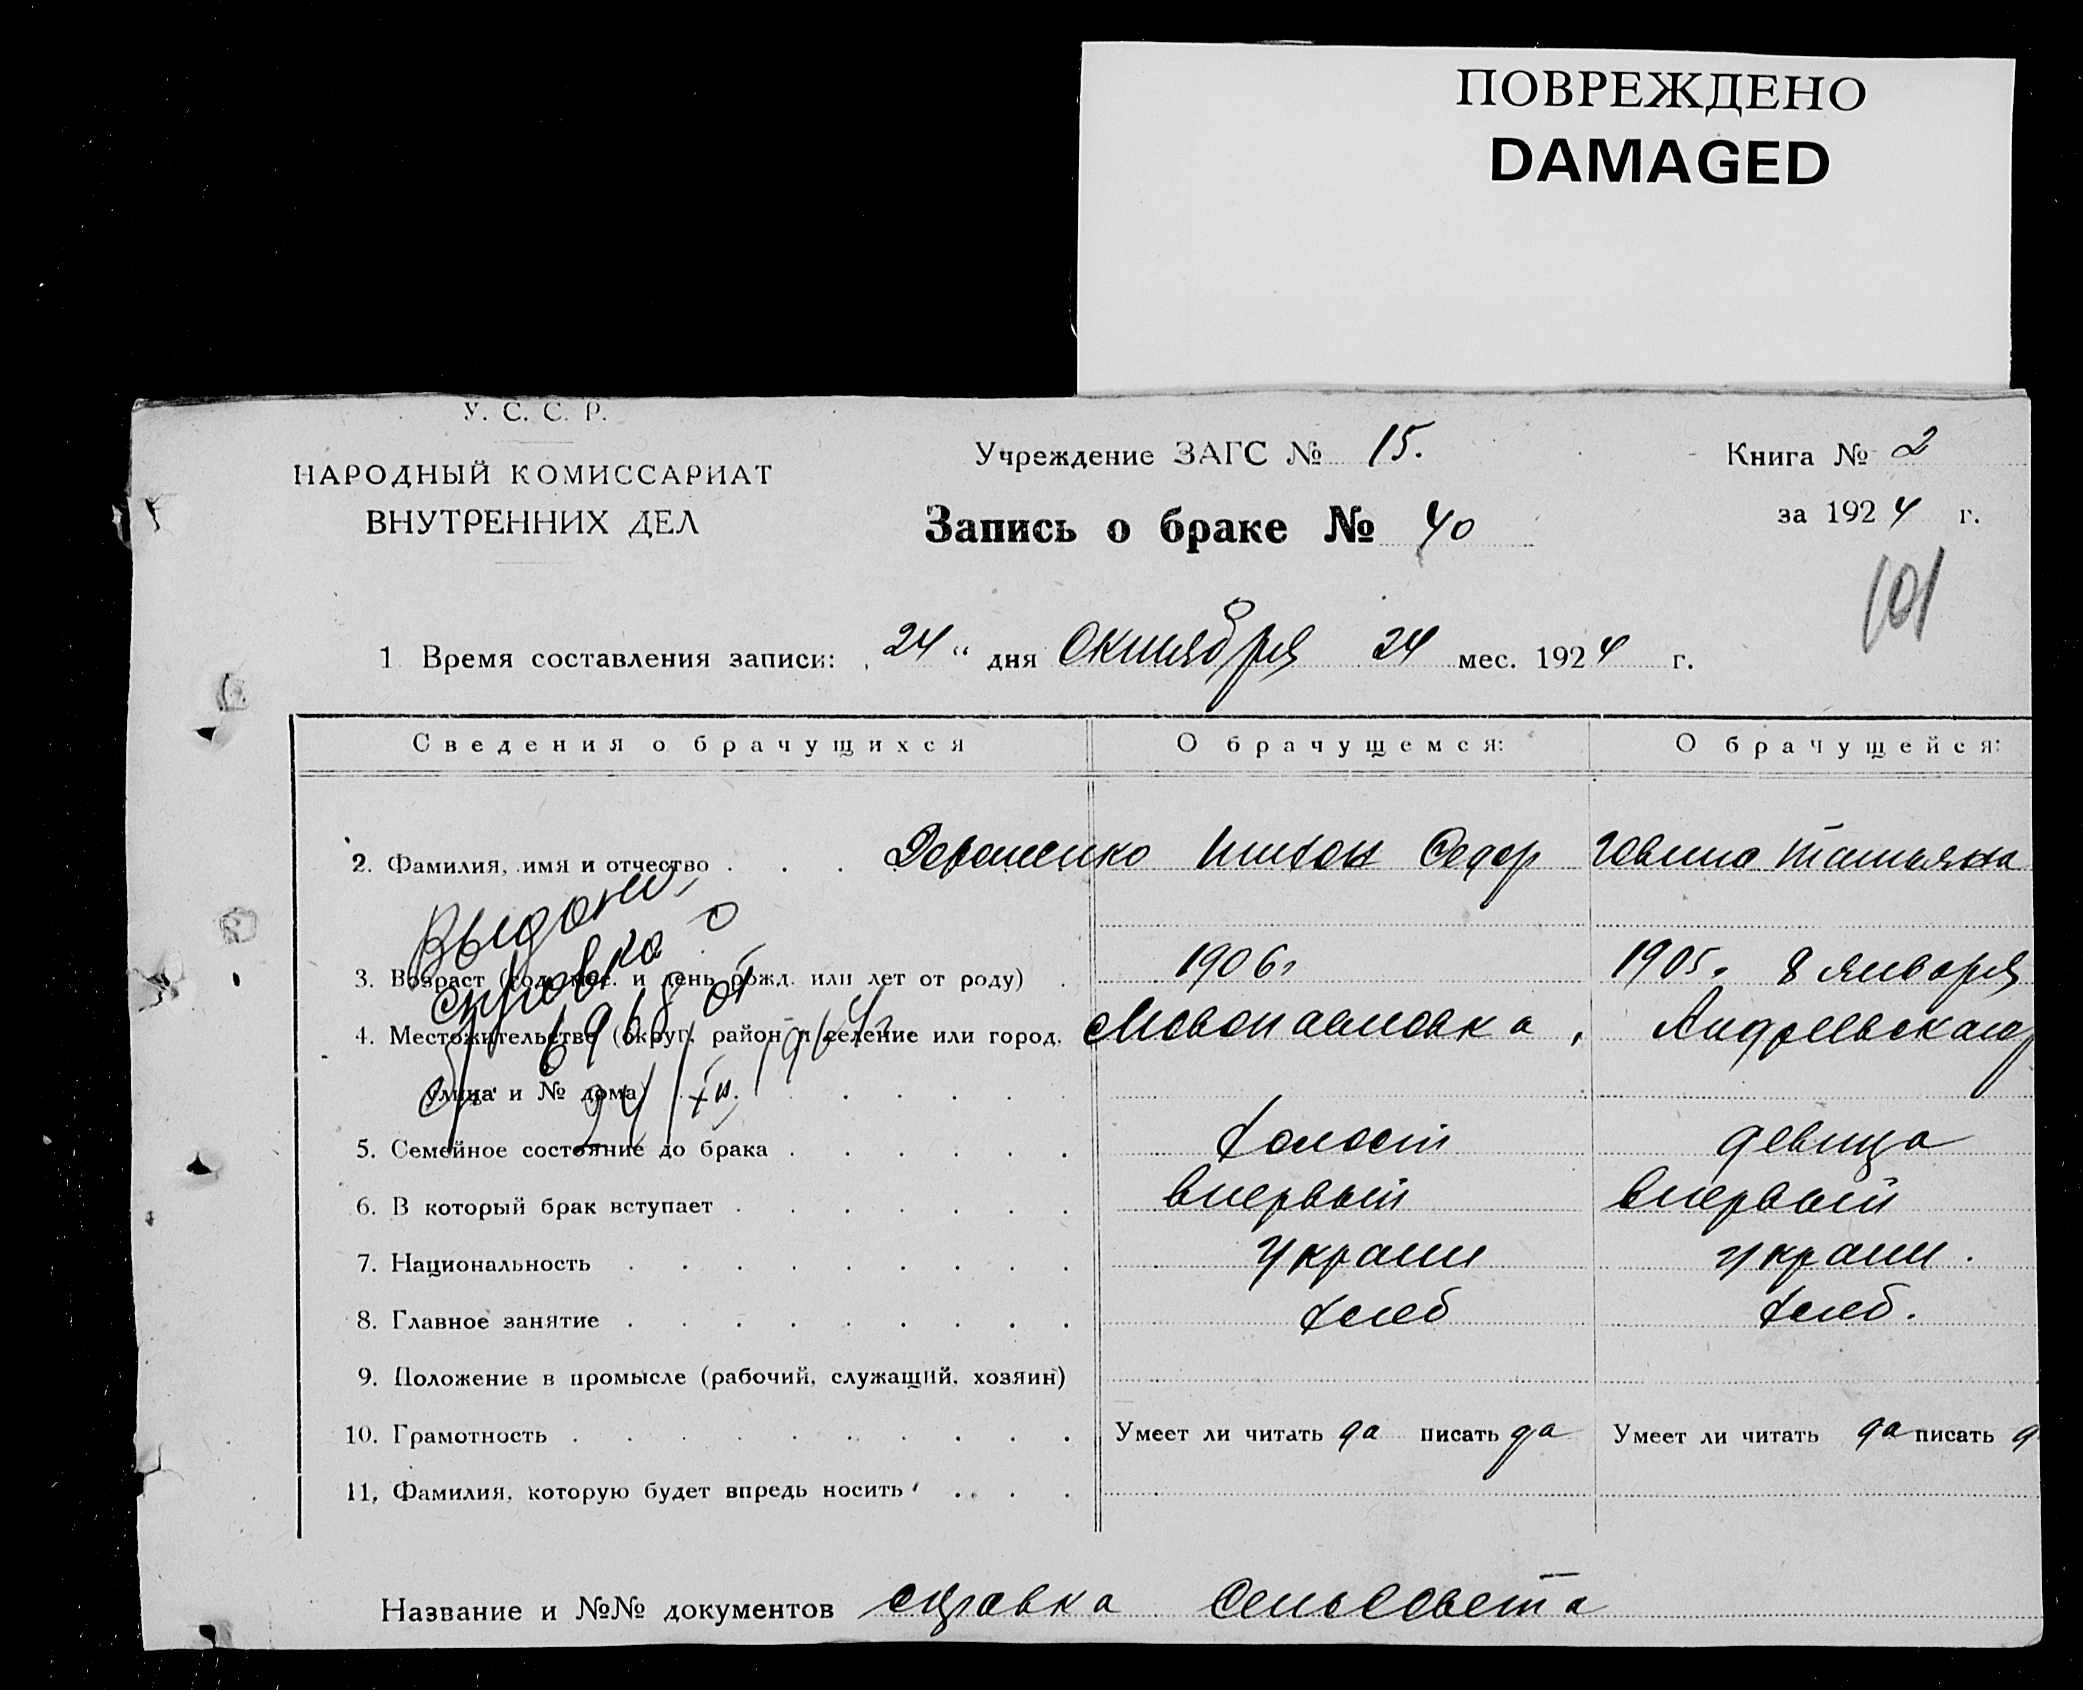 ПОВРЕЖДЕНО
DAMAGED
У. С. С. Р.
НАРОДНЫЙ КОМИССАРИАТ
ВНУТРЕННИХ ДЕЛ
Учреждение ЗАГС № 15.
Книга № 2
Запись о браке № 40
за 1924 г.
101
1 Время составления записи: „ 24 " дня Октября 24 мес. 1924 г.
Сведения о брачущихся О брачущемся: О брачущейся:
2. Фамилия, имя и отчество . . . Федор Татьяна
Выдана
справка о
3. Возраст (год, мес. и день рожд. или лет от роду) . 1906г 1905. 8 января
4. Местожительство (округ, район и селение или город, Новопавловка,
улица и № дома) . . .
24/XII
5. Семейное состояние до брака . . . . . . холост девица
6. В который брак вступает . . . . . . . впервый впервый
7. Национальность . . . . . . . . . украин украин.
8. Главное занятие . . . . . . . . . хлеб хлеб.
9. Положение в промысле (рабочий, служащий, хозяин)
10. Грамотность . . . . . . . . . . Умеет ли читать да писать да Умеет ли читать да писать д
11. Фамилия, которую будет впредь носить . . .
Название и №№ документов справка Сельсовета